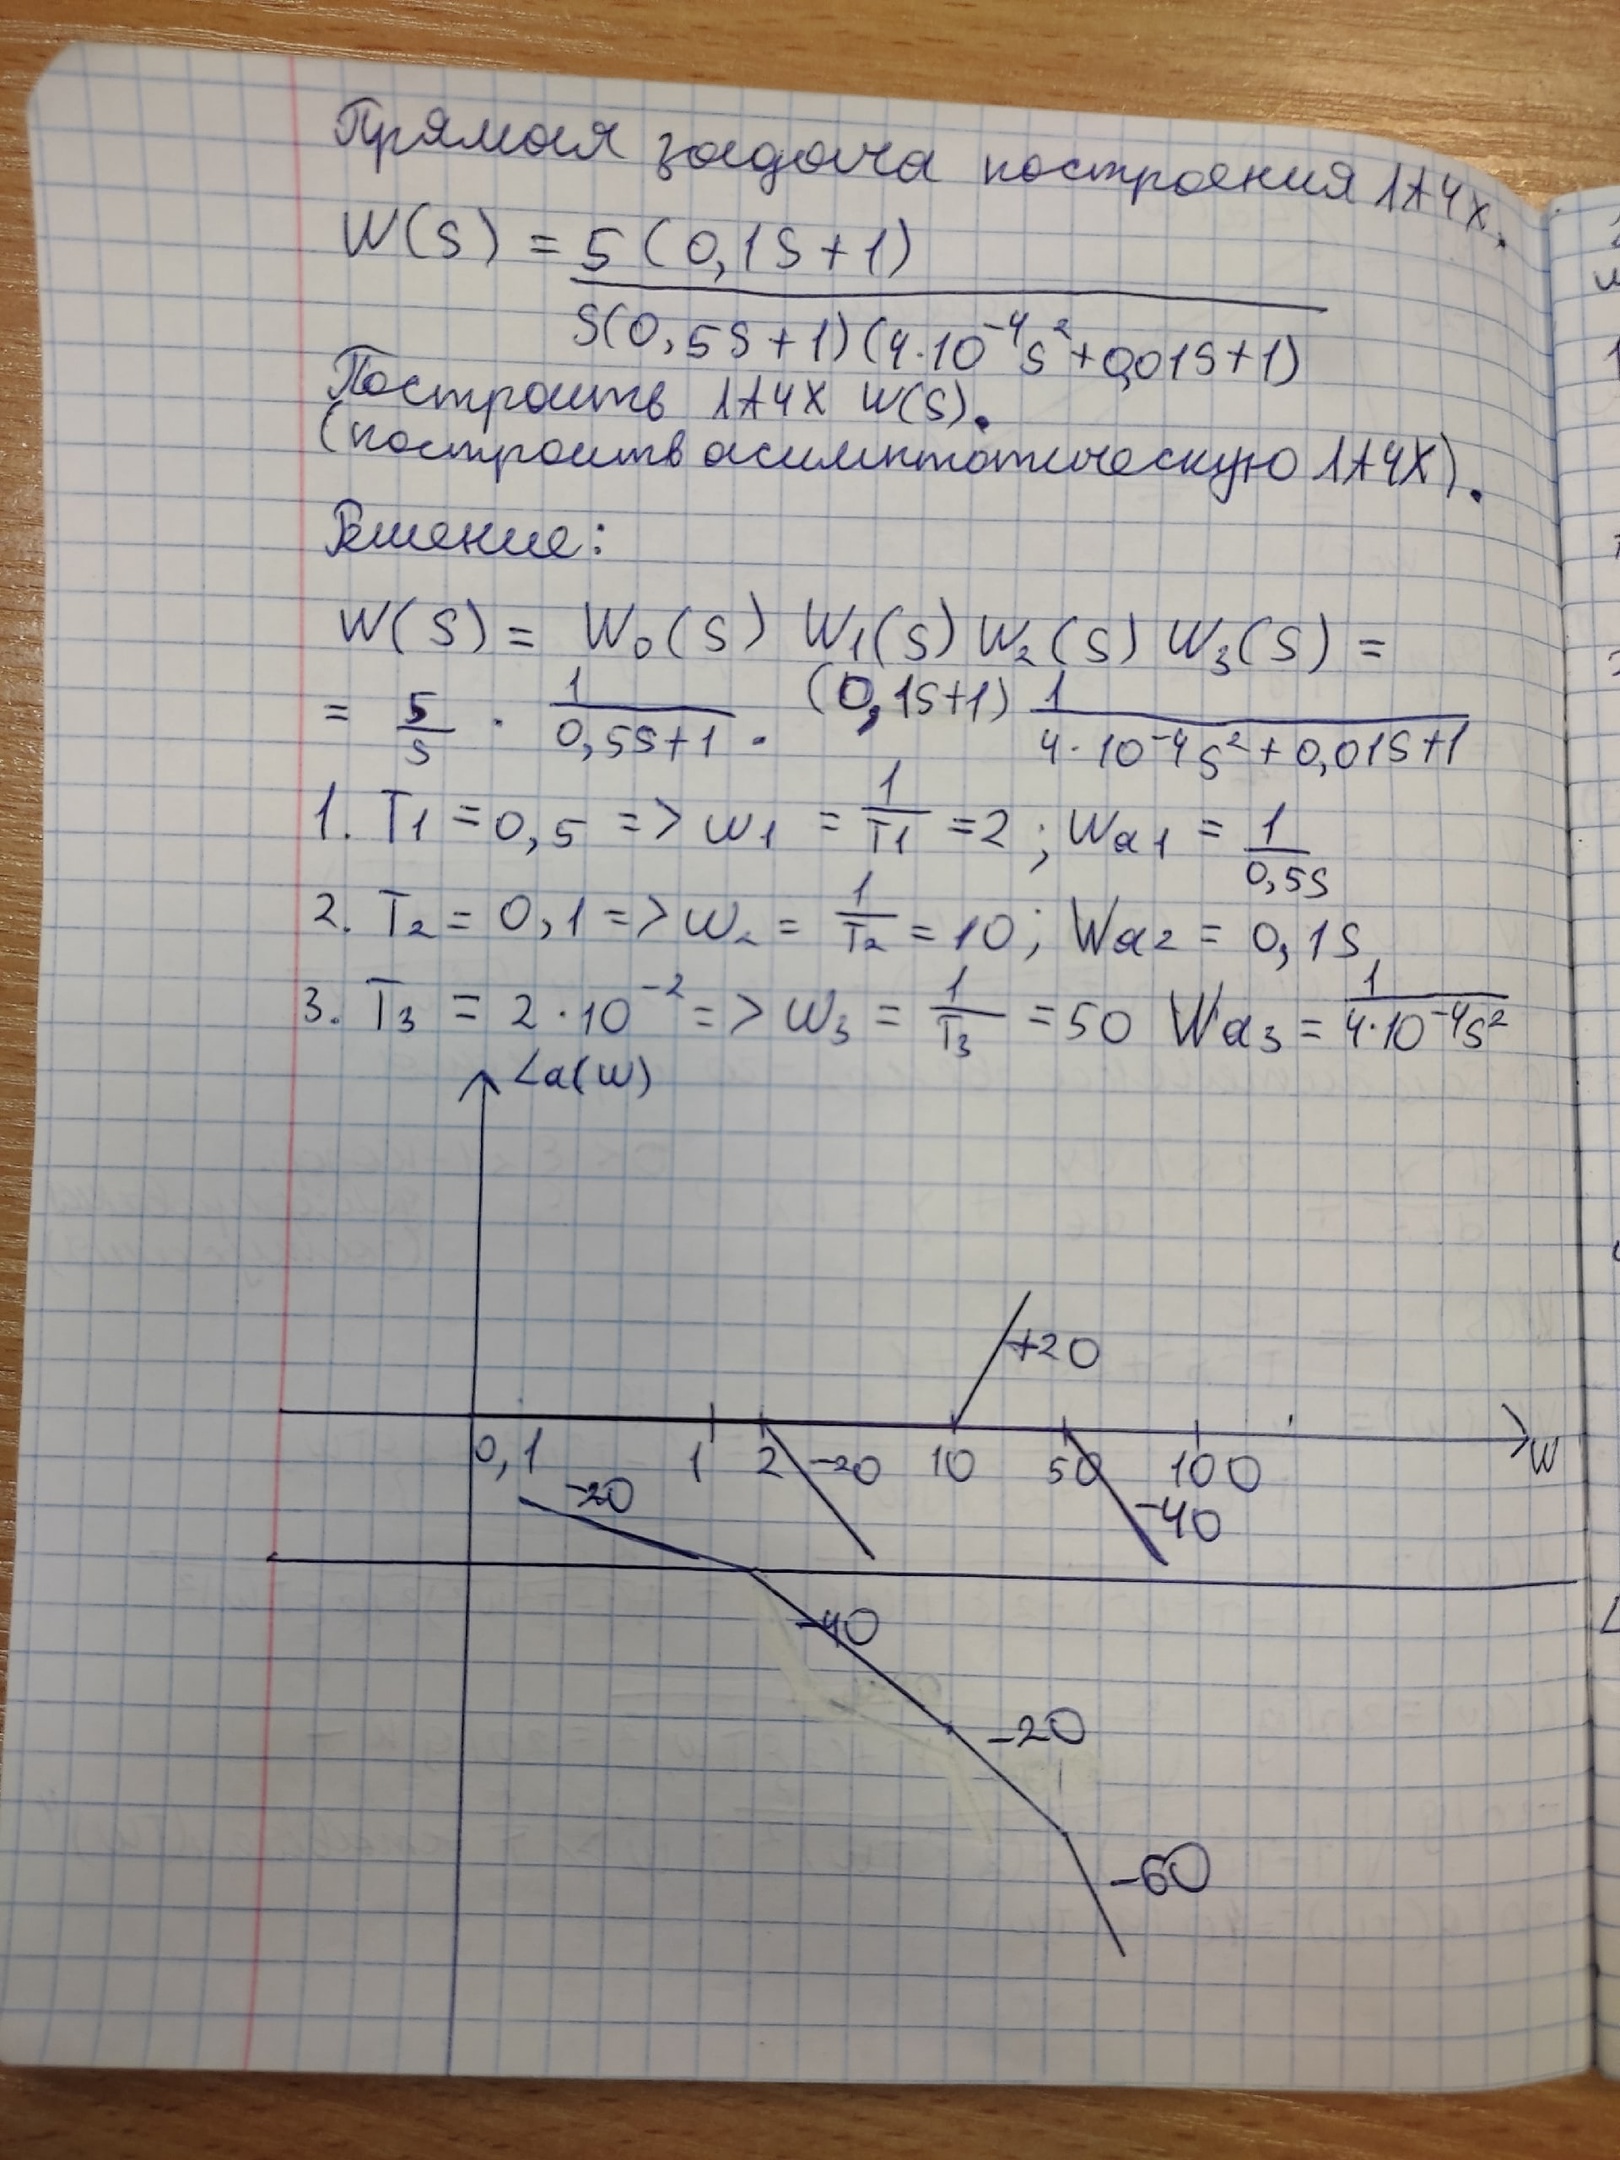 Прямая задача построения ЛАЧХ.
W(s) = 5(0,1s+1)
s(0,5s+1)(4·10⁻⁴s²+0,01s+1)
Построить ЛАЧХ W(s).
(построить асимптотическую ЛАЧХ).
Решение:
W(s) = W₀(s) W₁(s) W₂(s) W₃(s) =
= 5/s · 1/(0,5s+1) · (0,1s+1) 1/(4·10⁻⁴s²+0,01s+1)
1. T₁ = 0,5 => ω₁ = 1/T₁ = 2; Wa₁ = 1/0,5s
2. T₂ = 0,1 => ω₂ = 1/T₂ = 10; Wa₂ = 0,1s
3. T₃ = 2·10⁻² => ω₃ = 1/T₃ = 50 Wa₃ = 1/4·10⁻⁴s²
La(ω)
+20
0,1 1 2 -20 10 50 100 ω
-20 -40
-40
-20
-60